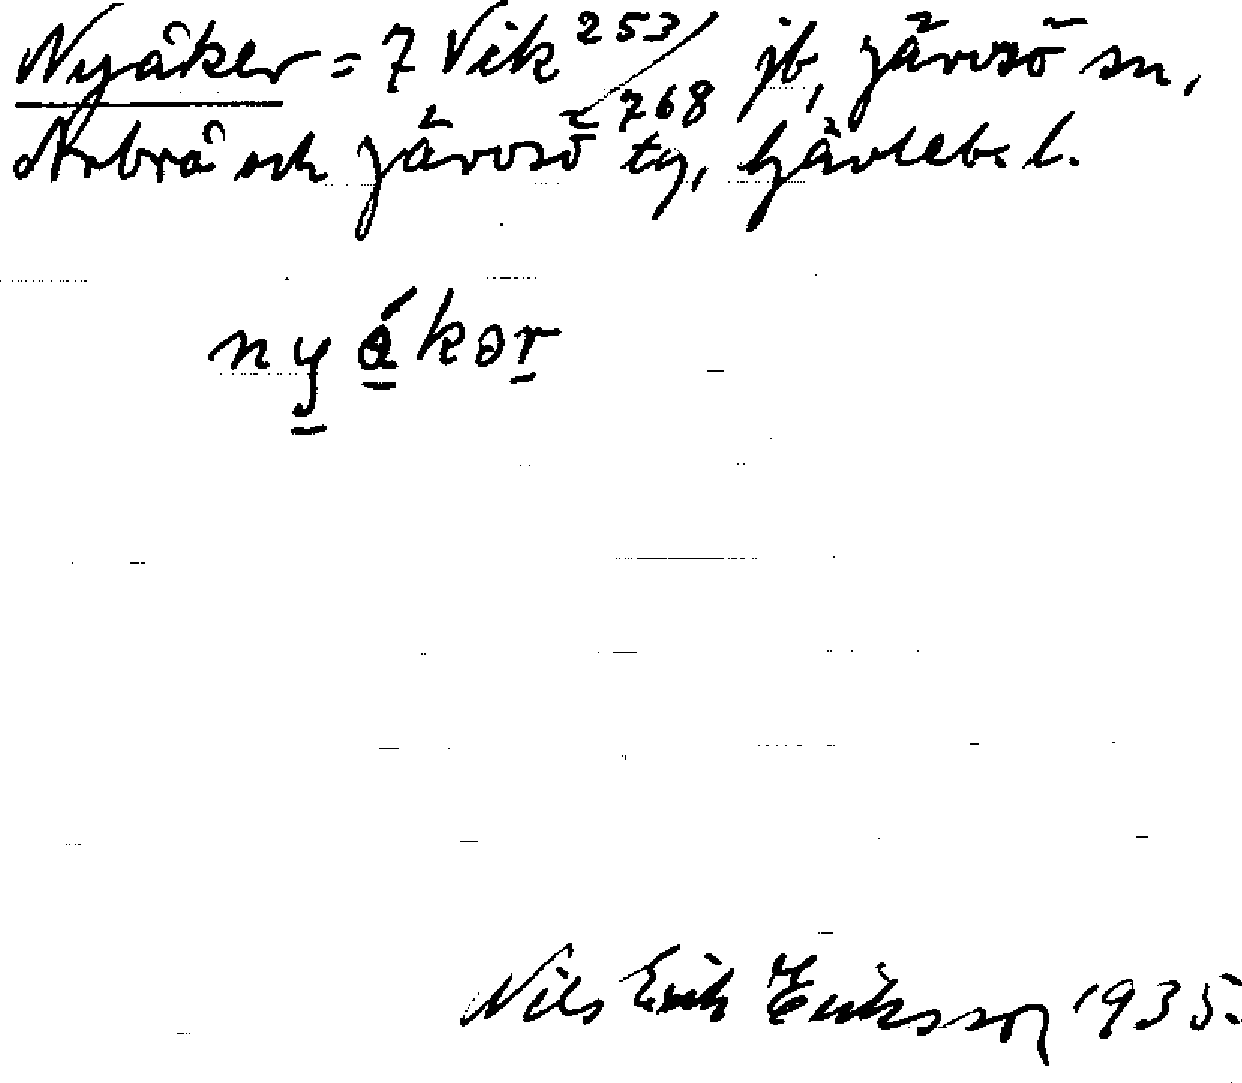 Nyåker = 7 Vik 253/768 jb, Järvsö sn,
Arbrå och Järvsö tg, Gävlebg l.
nyákər
Nils Erik Eriksson 1935.